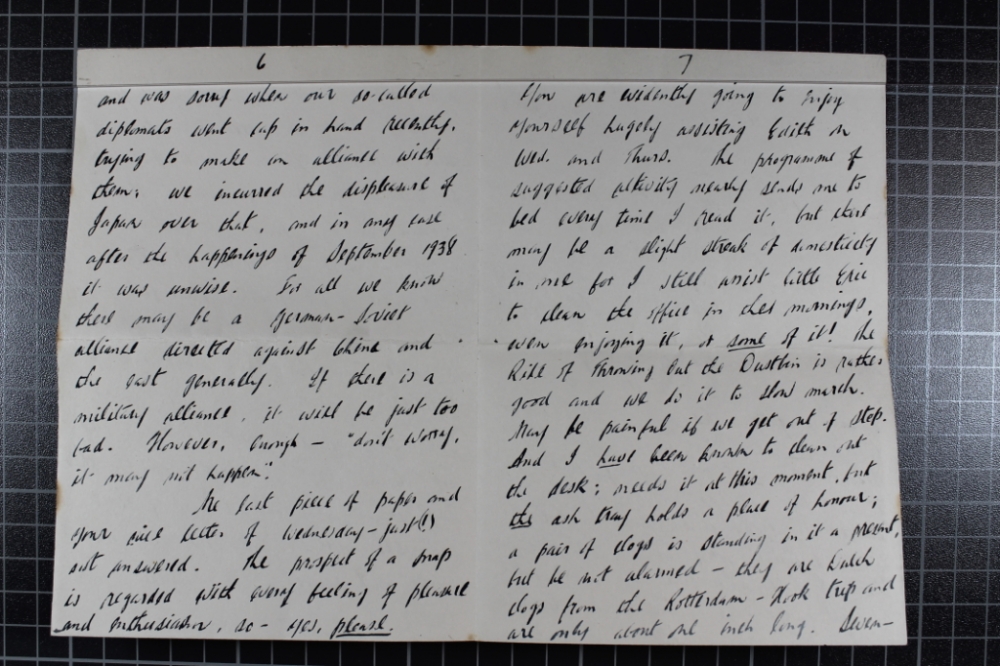 6
and was sorry when our so-called
diplomats went cap in hand recently,
trying to make an alliance with
them; we incurred the displeasure of
Japan over that, and in any case
after the happenings of September 1938
it was unwise. For all we know
there may be a German-Soviet
alliance directed against China and
the east generally. If there is a
military alliance, it will be just too
bad. However, enough - "don't worry,
it may not happen".
The last piece of paper and
your nice letter of Wednesday - just (!)
not answered. The prospect of a snap
is regarded with every feeling of pleasure
and enthusiasm, so - yes, please.
7
You are evidently going to enjoy
yourself hugely assisting Edith on
Wed. and Thurs. The programme of
suggested activity nearly sends me to
bed every time I read it, but there
may be a slight streak of domesticity
in me for I still assist little Eric
to clean the office in the mornings,
even enjoying it, or some of it! The
Rite of Throwing Out the Dustbin is rather
good and we do it to slow march.
May be painful if we get out of step.
And I have been known to clean out
the desk; needs it at this moment, but
the ash tray holds a place of honour;
a pair of clogs is standing in it a present,
but be not alarmed - they are Dutch
clogs from the Rotterdam - Hook trip and
are only about one inch long. Seven-